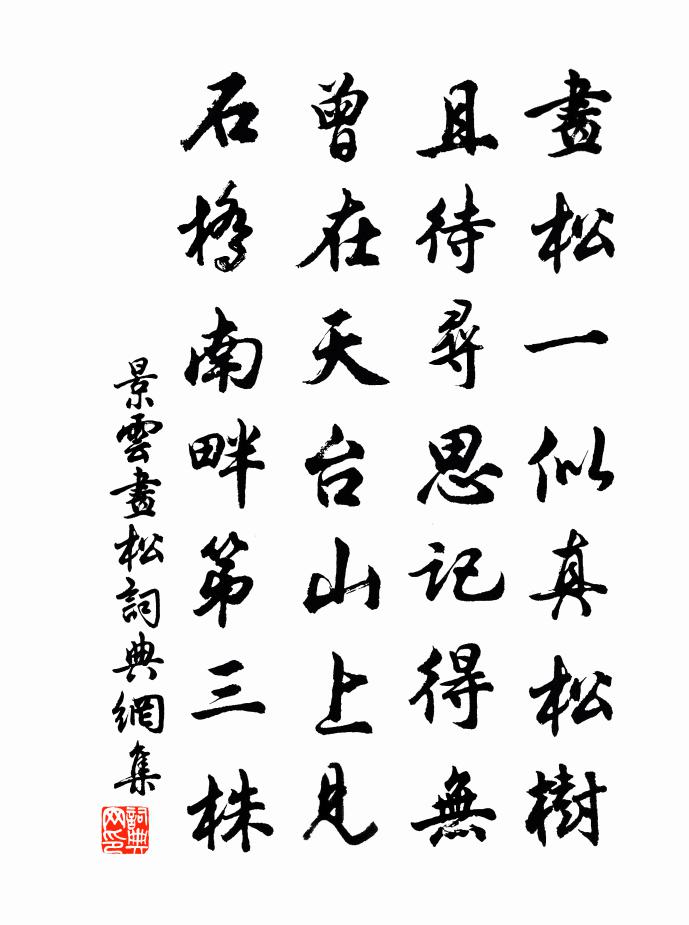 畫松一似真松樹
且待尋思記得無
曾在天台山上見
石橋南畔第三株
景雲畫松詞典網集
詞典网印